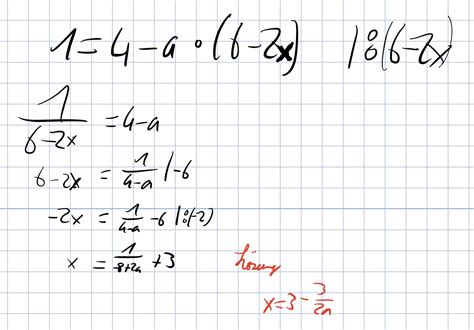 1 = 4 - a · (6 - 2x)   | : (6 - 2x)
1/(6 - 2x) = 4 - a
6 - 2x = 1/(4 - a) | -6
-2x = 1/(4 - a) - 6 | : (-2)
x = 1/(-8 + 2a) + 3
x = 3 - 3/(2a)